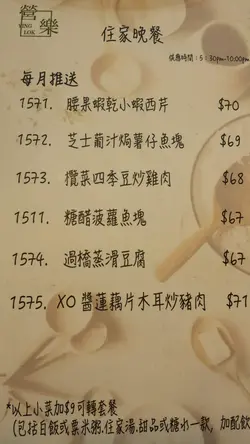 營
YING
LOK
樂
住家晚餐
供應時間：5:30pm-10:00pm
每月推送
1571. 腰果蝦乾小蝦西芹 $70
1572. 芝士葡汁焗薯仔魚塊 $69
1573. 欖菜四季豆炒雞肉 $68
1511. 糖醋菠蘿魚塊 $67
1574. 過橋蒸滑豆腐 $67
1575. XO 醬蓮藕片木耳炒豬肉 $71
*以上小菜加$9可轉套餐
(包括白飯或粟米粥.住家湯.甜品或糖水一款, 加配飲